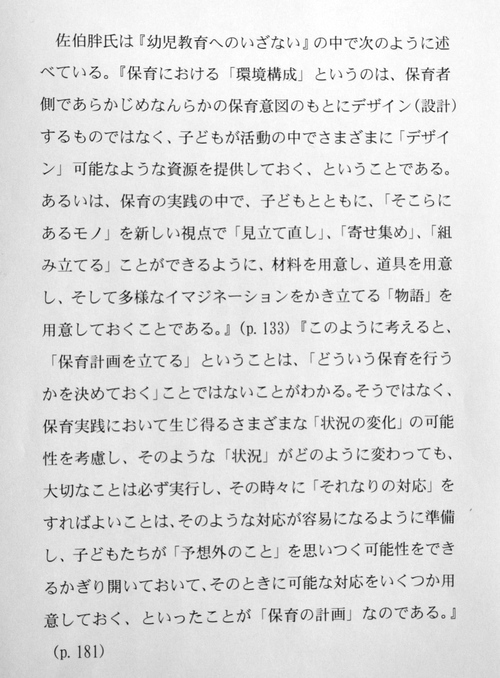 佐伯胖氏は『幼児教育へのいざない』の中で次のように述
べている。『保育における「環境構成」というのは、保育者
側であらかじめなんらかの保育意図のもとにデザイン(設計)
するものではなく、子どもが活動の中でさまざまに「デザイ
ン」可能なような資源を提供しておく、ということである。
あるいは、保育の実践の中で、子どもとともに、「そこらに
あるモノ」を新しい視点で「見立て直し」、「寄せ集め」、「組
み立てる」ことができるように、材料を用意し、道具を用意
し、そして多様なイマジネーションをかき立てる「物語」を
用意しておくことである。』(p.133)『このように考えると、
「保育計画を立てる」ということは、「どういう保育を行う
かを決めておく」ことではないことがわかる。そうではなく、
保育実践において生じ得るさまざまな「状況の変化」の可能
性を考慮し、そのような「状況」がどのように変わっても、
大切なことは必ず実行し、その時々に「それなりの対応」を
すればよいことは、そのような対応が容易になるように準備
し、子どもたちが「予想外のこと」を思いつく可能性をでき
るかぎり開いておいて、そのときに可能な対応をいくつか用
意しておく、といったことが「保育の計画」なのである。』
(p.181)